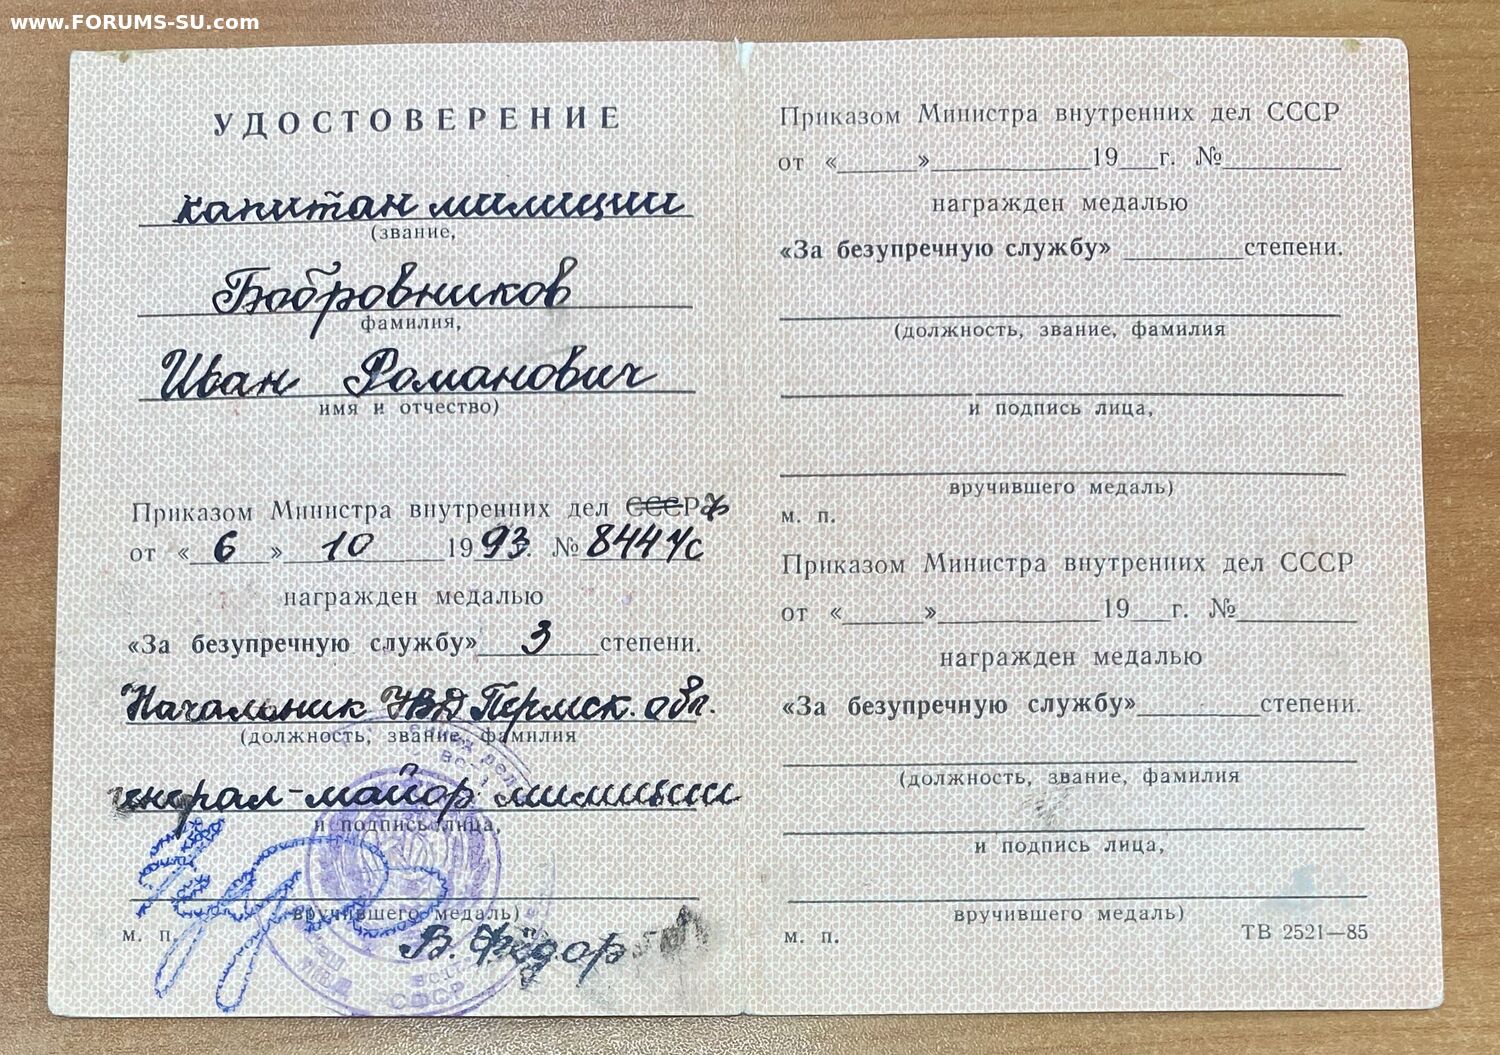 www.FORUMS-SU.com
УДОСТОВЕРЕНИЕ
капитан милиции
(звание,
Бобровников
фамилия,
Иван Романович
имя и отчество)
Приказом Министра внутренних дел СССР
от « 6 » 10 1993. № 844 л/с
награжден медалью
«За безупречную службу» 3 степени.
Начальник УВД Пермск. обл.
(должность, звание, фамилия
генерал-майор милиции
и подпись лица,
вручившего медаль)
м. п.
В. Фёдоров
СФСР
Приказом Министра внутренних дел СССР
от «______»____________19___г. №_________
награжден медалью
«За безупречную службу» _________степени.
(должность, звание, фамилия
и подпись лица,
вручившего медаль)
м. п.
Приказом Министра внутренних дел СССР
от «______»____________19___г. №_________
награжден медалью
«За безупречную службу»_________степени.
(должность, звание, фамилия
и подпись лица,
вручившего медаль)
м. п.
ТВ 2521—85